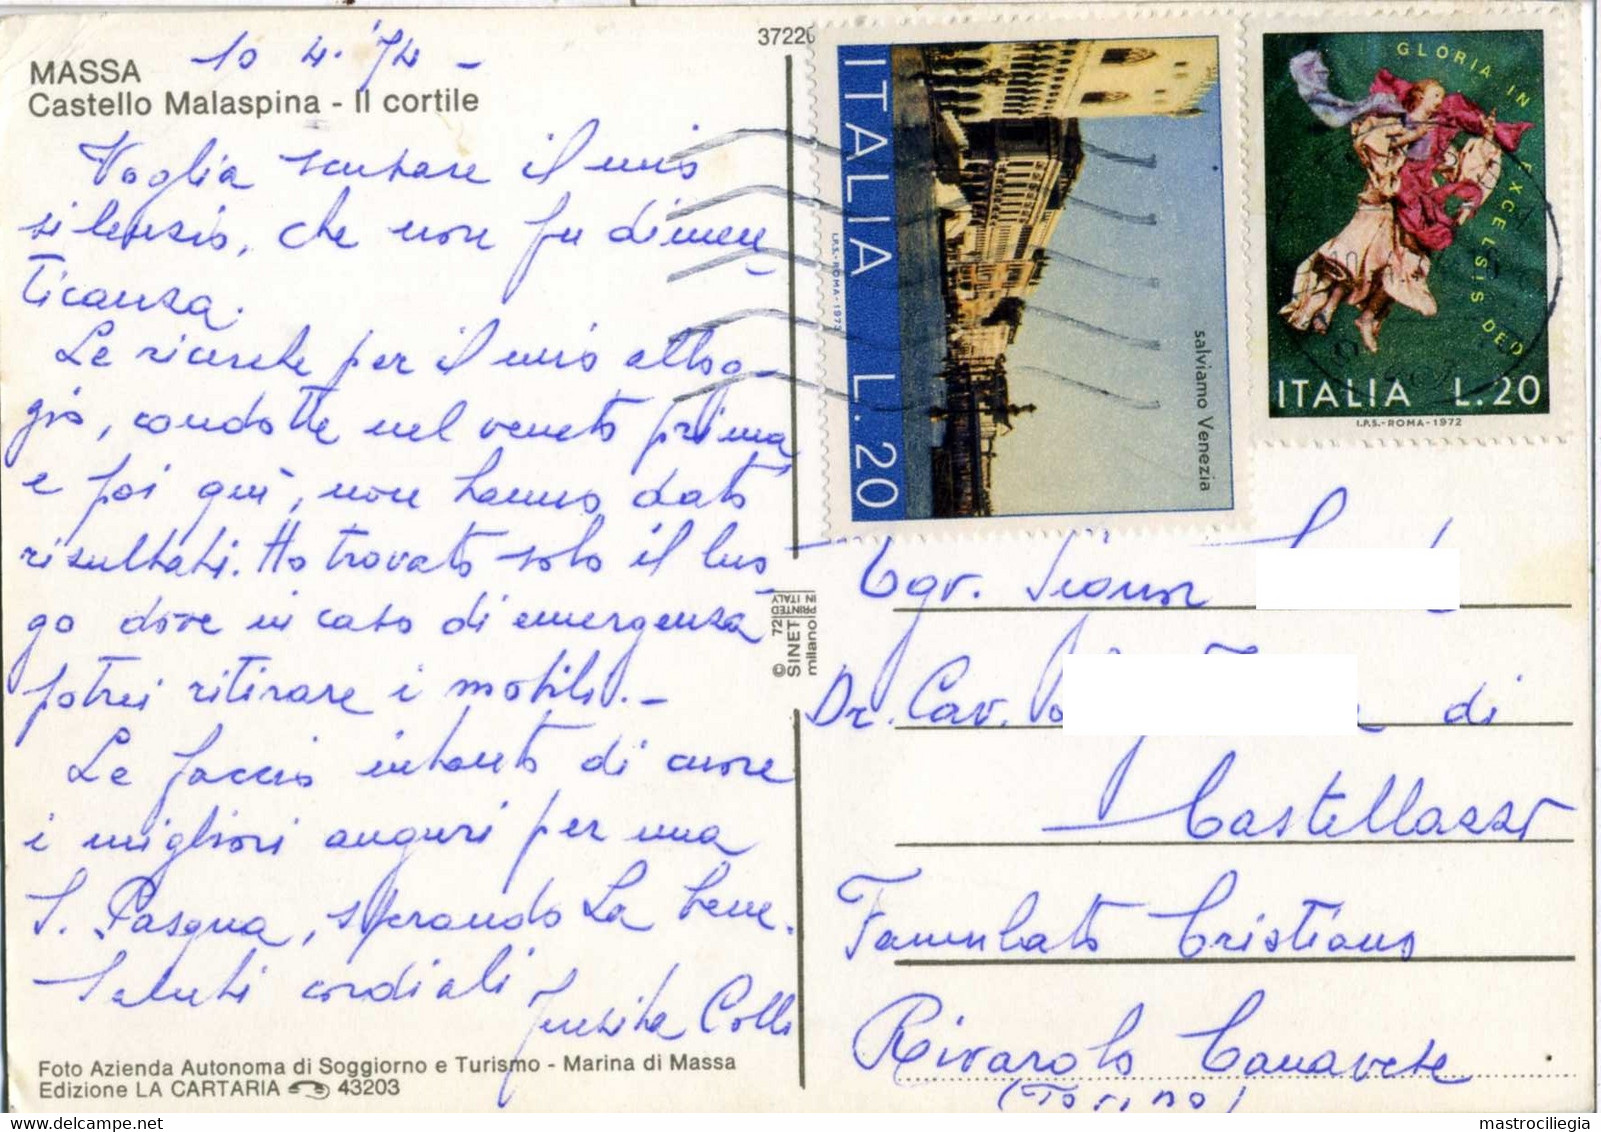 MASSA
Castello Malaspina - Il cortile
10 4. '74 -
Voglia scusare il mio
silenzio, che non fu dimen
ticanza.
Le ricerche per il mio allog-
gio, condotte nel veneto prima
e poi qui, non hanno dato
risultati. Ho trovato solo il luo-
go dove in caso di emergenza
potrei ritirare i mobili. -
Le faccio intanto di cuore
i migliori auguri per una
S. Pasqua, sperando La bene.
Saluti cordiali
Colli
Foto Azienda Autonoma di Soggiorno e Turismo - Marina di Massa
Edizione LA CARTARIA 43203
37226
© SINET
milano
72
PRINTED
IN ITALY
ITALIA L.20
I.P.S.-ROMA-1973
salviamo Venezia
GLORIA IN EXCELSIS DEO
ITALIA L.20
I.P.S.-ROMA-1972
Egr. Signor
Dr. Cav. di
Castellazzo
Famulato Cristiano
Rivarolo Canavese
(Torino)
mastrociliegia